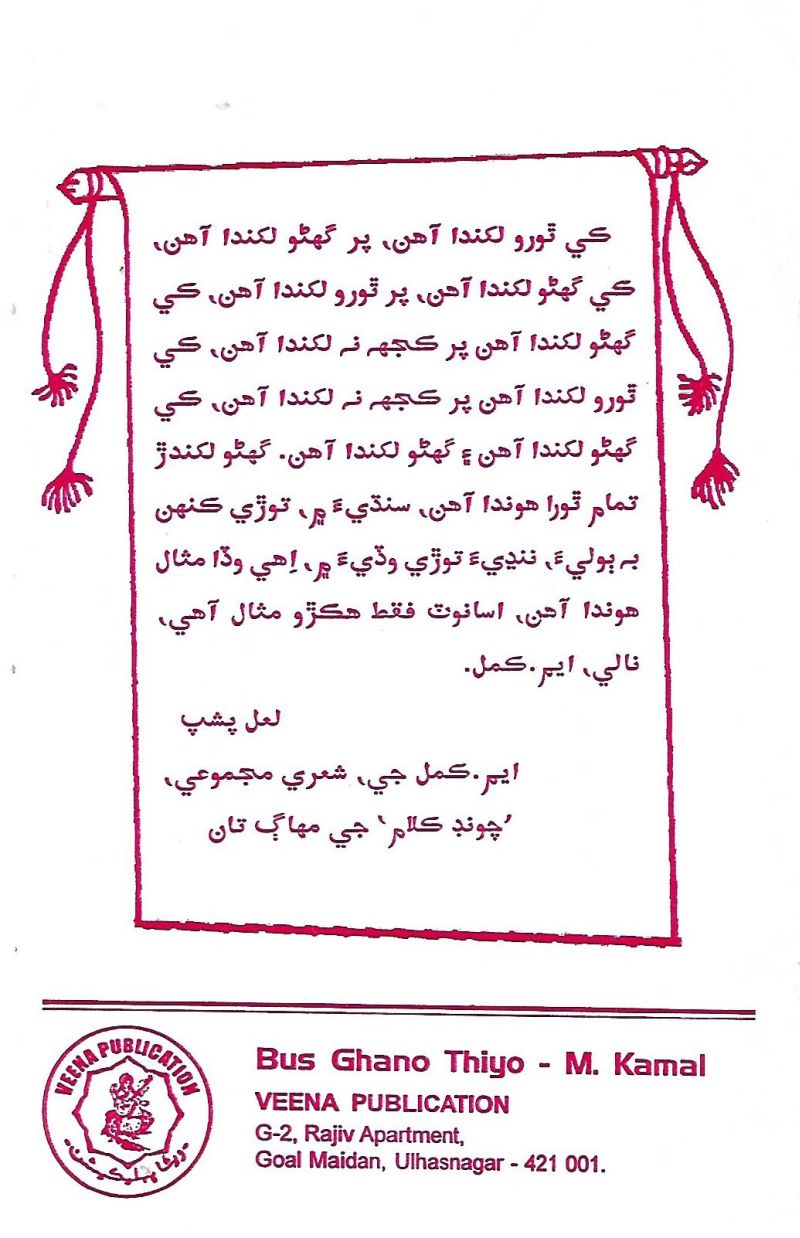 ڪي ٿورو لکندا آهن، پر گھڻو لکندا آهن،
ڪي گھڻو لکندا آهن، پر ٿورو لکندا آهن، ڪي
گھڻو لکندا آهن پر ڪجهہ نہ لکندا آهن، ڪي
ٿورو لکندا آهن پر ڪجهہ نہ لکندا آهن، ڪي
گھڻو لکندا آهن ۽ گھڻو لکندا آهن. گھڻو لکندڙ
تمام ٿورا هوندا آهن، سنڌيءَ ۾، توڙي ڪنهن
بہ ٻوليءَ، ننڍيءَ توڙي وڏيءَ ۾، اِهي وڏا مثال
هوندا آهن، اسانوٽ فقط هڪڙو مثال آهي،
نالي، ايم.ڪمل.
لعل پشپ
ايم.ڪمل جي، شعري مجموعي،
’چونڊ ڪلام‘ جي مهاڳ تان
VEENA PUBLICATION
ويڻا پبليڪيشن
Bus Ghano Thiyo - M. Kamal
VEENA PUBLICATION
G-2, Rajiv Apartment,
Goal Maidan, Ulhasnagar - 421 001.